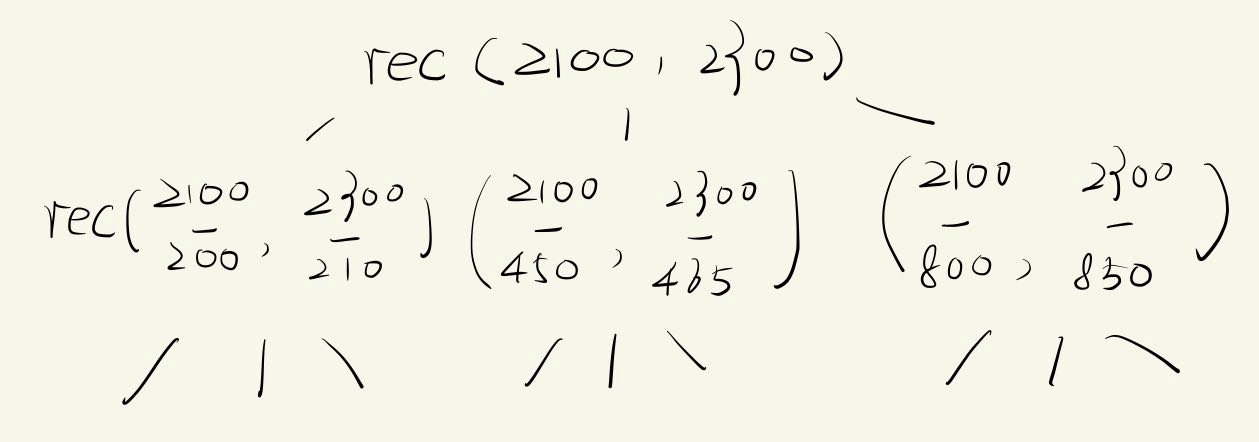 rec (2100, 2300)
rec(2100 - 200, 2300 - 210) (2100 - 450, 2300 - 465) (2100 - 800, 2300 - 850)